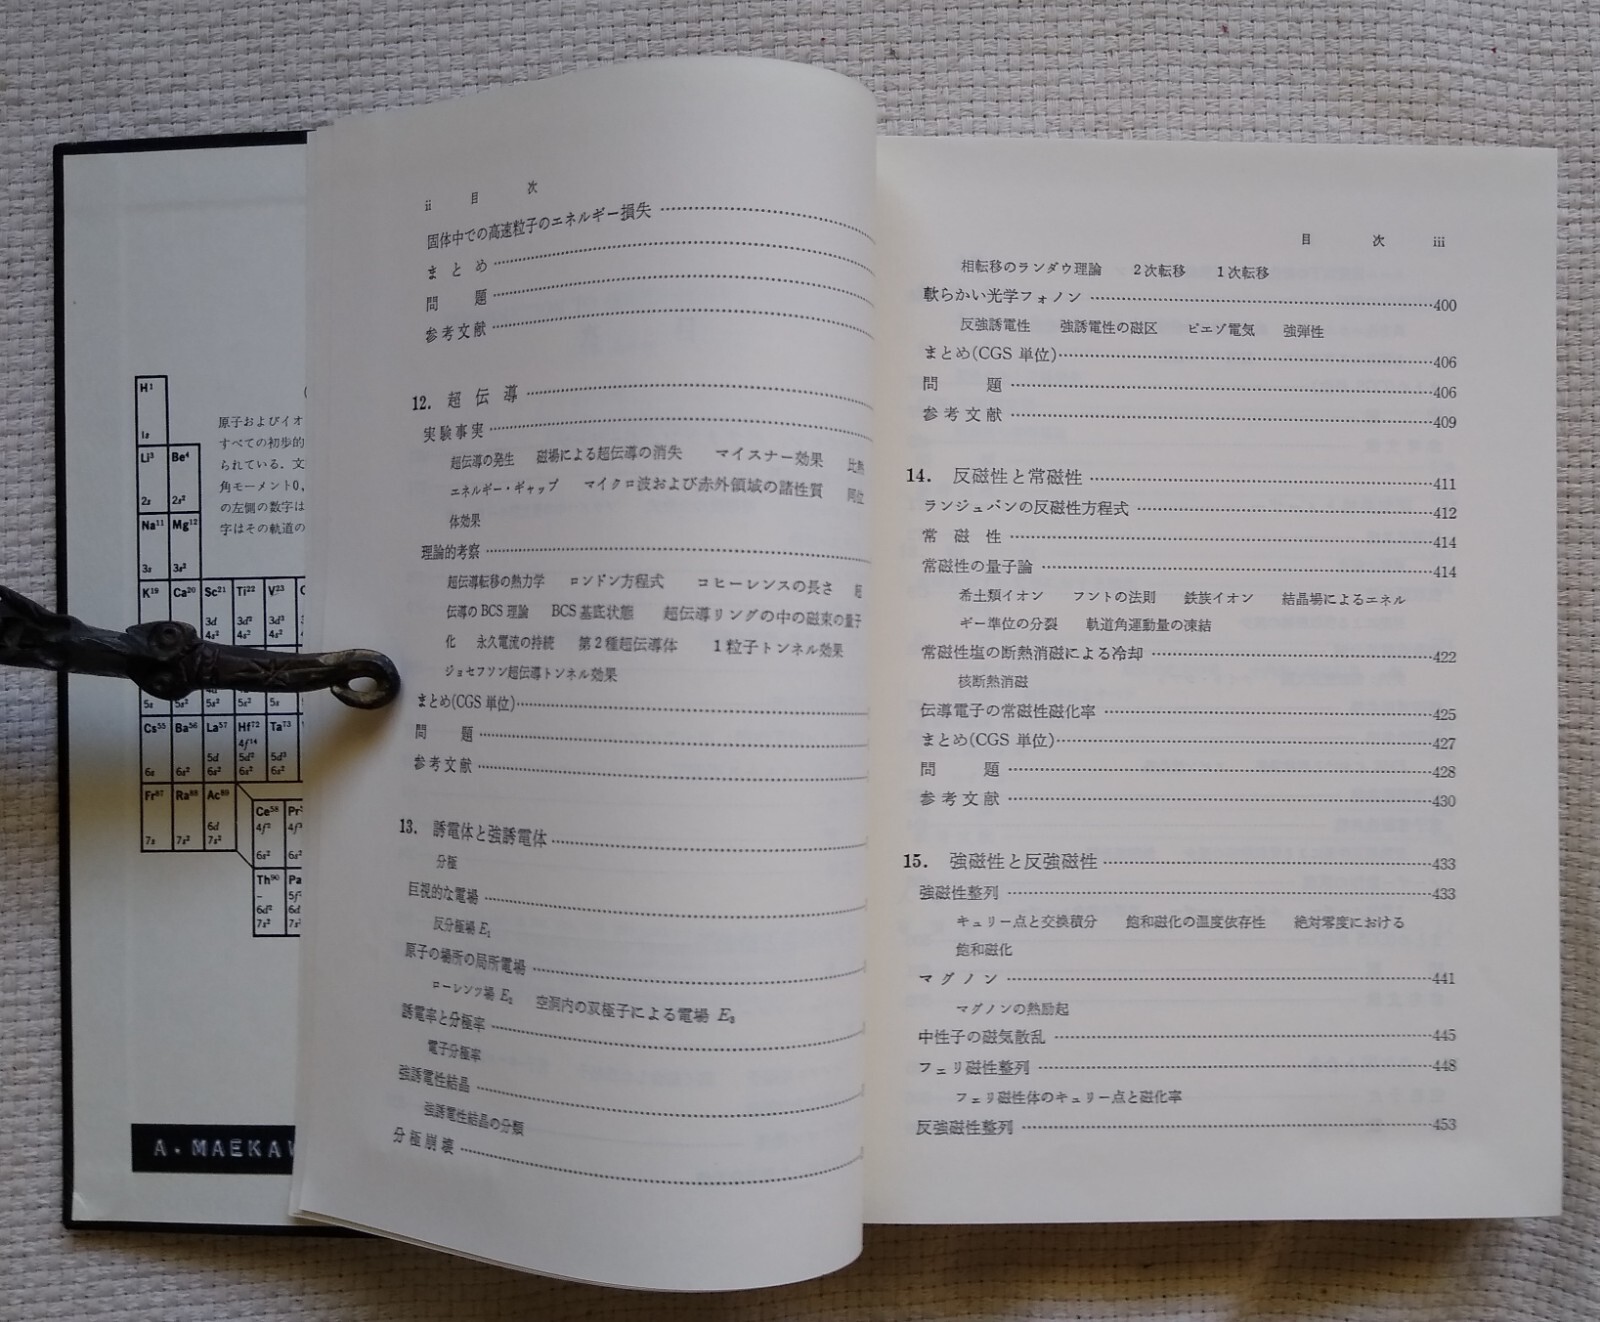 H¹
1s
Li³ Be⁴
2s 2s²
Na¹¹ Mg¹²
3s 3s²
K¹⁹ Ca²⁰ Sc²¹ Ti²² V²³
3d 3d² 3d³
4s²
5s 5s² 5s² 5s² 5s
Cs⁵⁵ Ba⁵⁶ La⁵⁷ Hf⁷² Ta⁷³
4f¹⁴
5d 5d² 5d³
6s 6s² 6s² 6s² 6s²
Fr⁸⁷ Ra⁸⁸ Ac⁸⁹
6d
7s 7s² 7s²
Ce⁵⁸ Pr
4f²
6s²
Th⁹⁰ Pa
–
6d²
7s²
原子およびイオ
すべての初歩的
られている．文
角モーメント0，
の左側の数字は
字はその軌道の
A. MAEKAW
ii 目 次
固体中での高速粒子のエネルギー損失
まとめ
問 題
参考文献
12. 超伝導
実験事実
超伝導の発生 磁場による超伝導の消失 マイスナー効果 比熱
エネルギー・ギャップ マイクロ波および赤外領域の諸性質 同位
体効果
理論的考察
超伝導転移の熱力学 ロンドン方程式 コヒーレンスの長さ 超
伝導の BCS 理論 BCS 基底状態 超伝導リングの中の磁束の量子
化 永久電流の持続 第2種超伝導体 1粒子トンネル効果
ジョセフソン超伝導トンネル効果
まとめ(CGS 単位)
問 題
参考文献
13. 誘電体と強誘電体
分極
巨視的な電場
反分極場 E₁
原子の場所の局所電場
ローレンツ場 E₂ 空洞内の双極子による電場 E₃
誘電率と分極率
電子分極率
強誘電性結晶
強誘電性結晶の分類
分極崩壊
目 次 iii
相転移のランダウ理論 2次転移 1次転移
軟らかい光学フォノン 400
反強誘電性 強誘電性の磁区 ピエゾ電気 強弾性
まとめ(CGS 単位) 406
問 題 406
参考文献 409
14. 反磁性と常磁性 411
ランジュバンの反磁性方程式 412
常磁性 414
常磁性の量子論 414
希土類イオン フントの法則 鉄族イオン 結晶場によるエネル
ギー準位の分裂 軌道角運動量の凍結
常磁性塩の断熱消磁による冷却 422
核断熱消磁
伝導電子の常磁性磁化率 425
まとめ(CGS 単位) 427
問 題 428
参考文献 430
15. 強磁性と反強磁性 433
強磁性整列 433
キュリー点と交換積分 飽和磁化の温度依存性 絶対零度における
飽和磁化
マグノン 441
マグノンの熱励起
中性子の磁気散乱 445
フェリ磁性整列 448
フェリ磁性体のキュリー点と磁化率
反強磁性整列 453